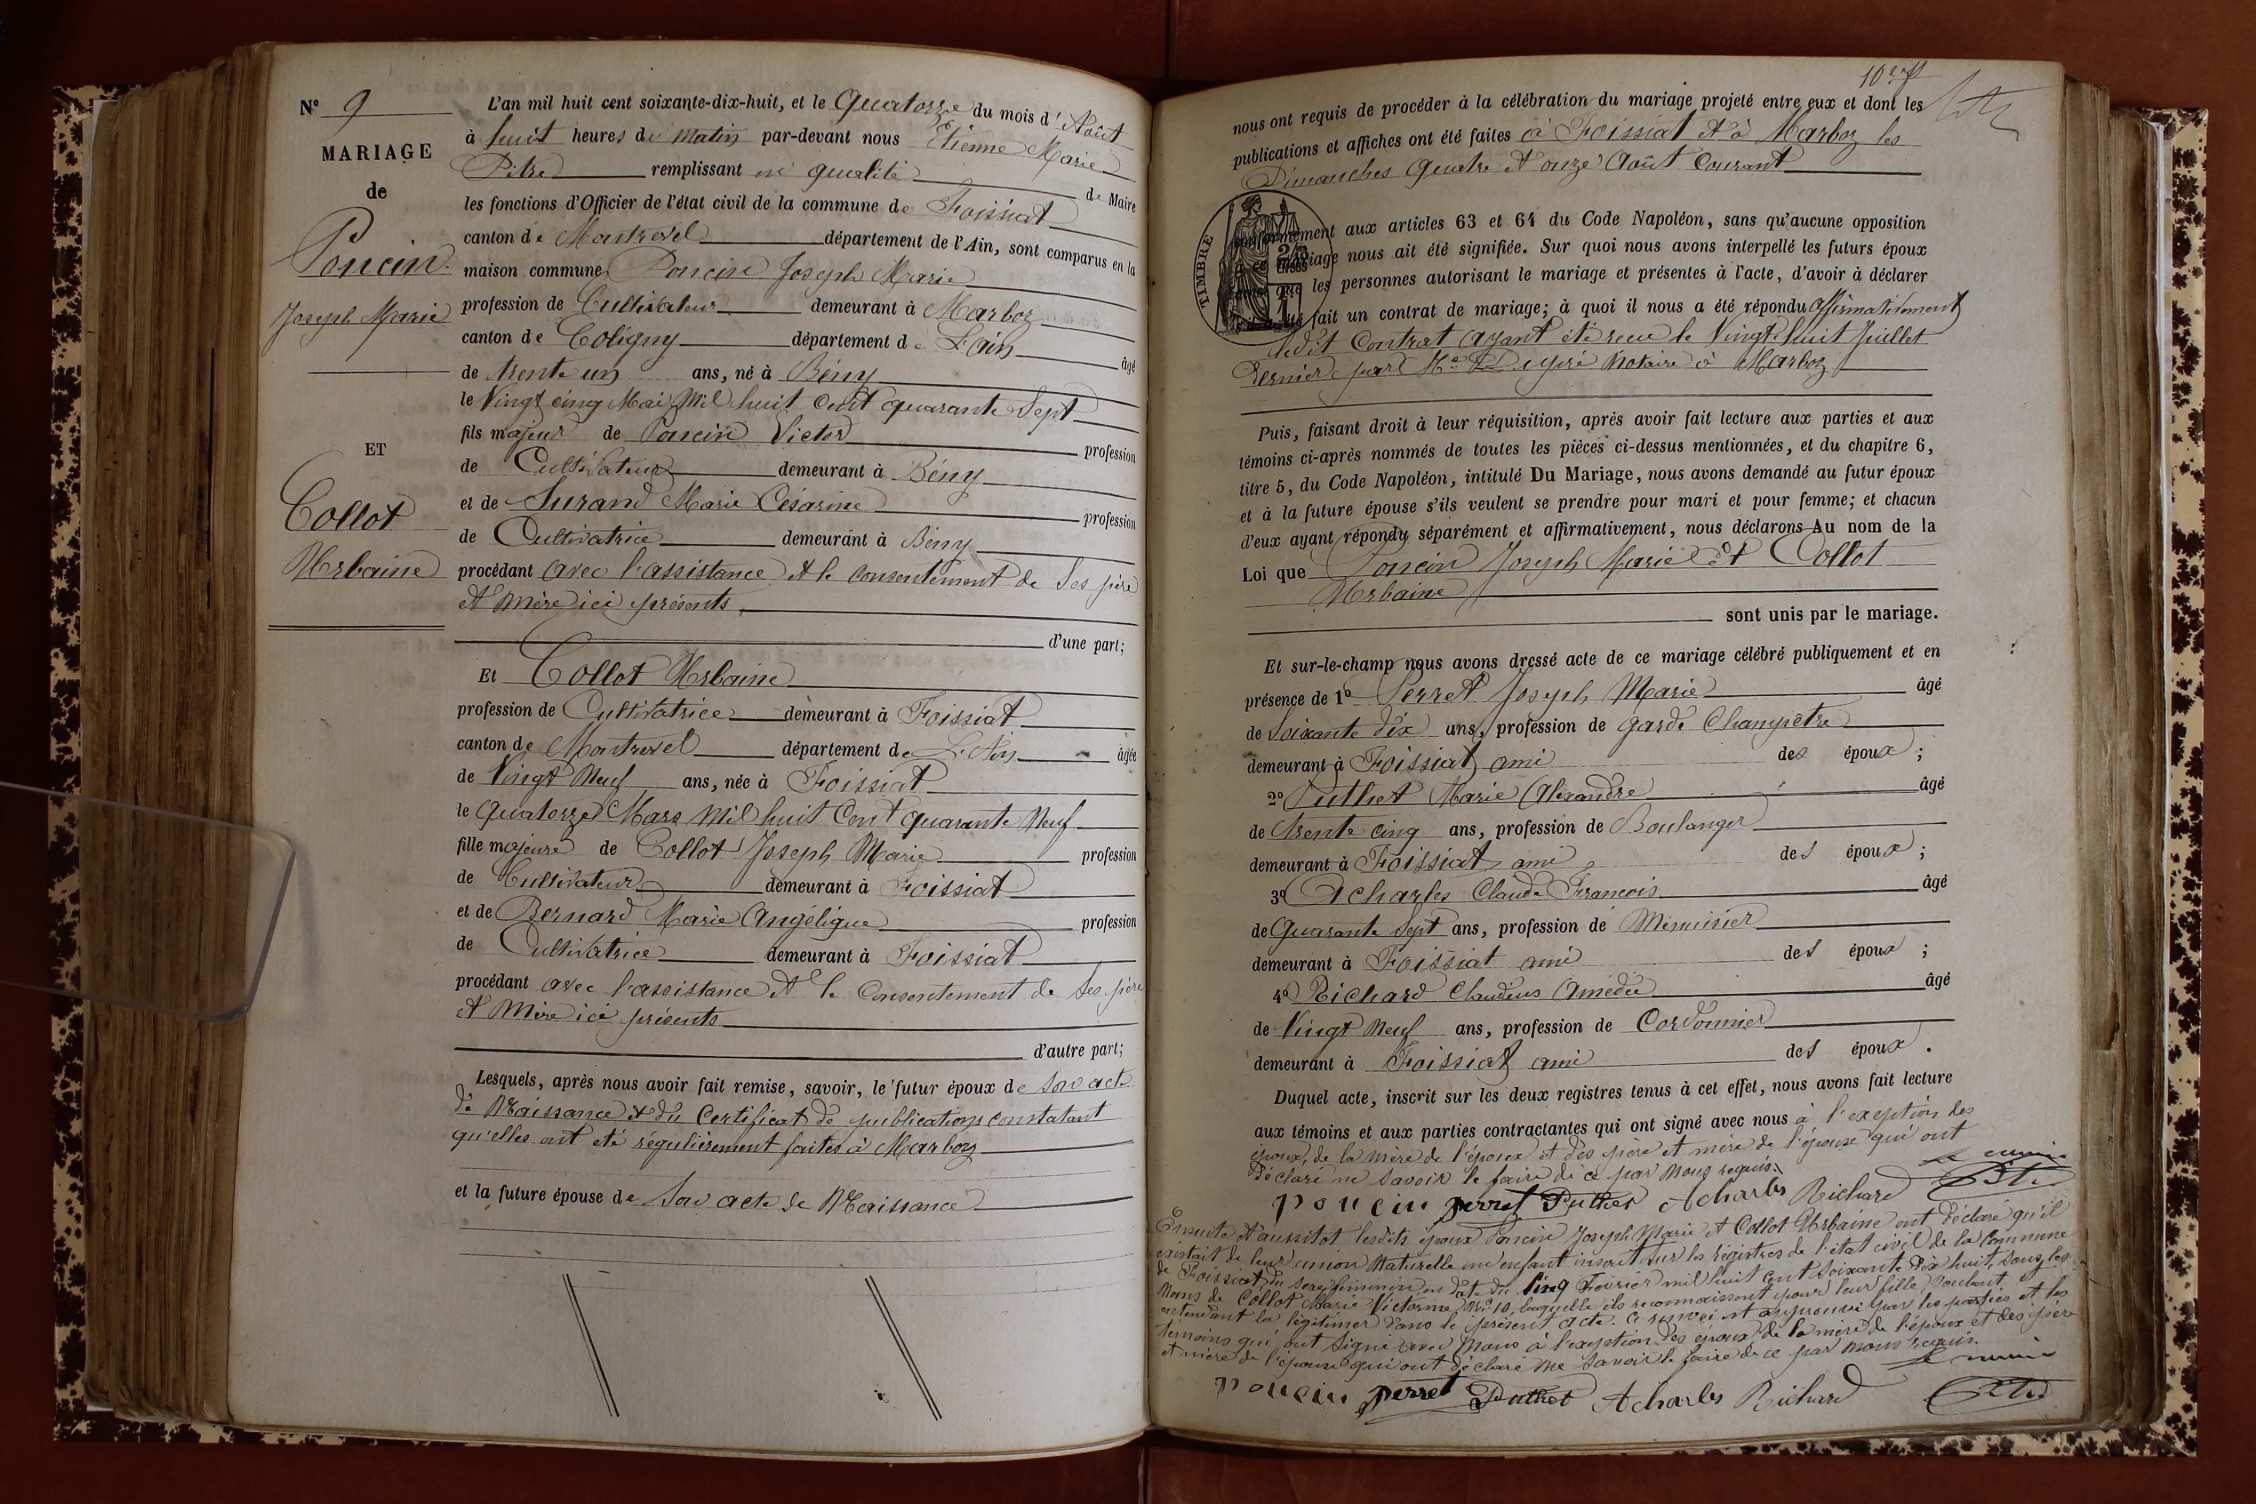 N° 9
MARIAGE
de
Poncin
Joseph Marie
ET
Collot
Urbaine
L'an mil huit cent soixante-dix-huit, et le Quatorze du mois d'Août
à huit heures du matin par-devant nous Etienne Marie
Pitre remplissant en qualité de Maire
les fonctions d'Officier de l'état civil de la commune de Foissiat
canton de Montrevel département de l'Ain, sont comparus en la
maison commune Poncin Joseph Marie
profession de Cultivateur demeurant à Marboz
canton de Coligny département de L'ain âgé
de trente un ans, né à Bény
le Vingt cinq Mai Mil huit cent quarante Sept
fils majeur de Poncin Victor profession
de Cultivateur demeurant à Bény
et de Surand Marie Césarine profession
de Cultivatrice demeurant à Bény
procédant avec l'assistance et le consentement de Ses père
et Mère ici présents
d'une part;
Et Collot Urbaine
profession de Cultivatrice demeurant à Foissiat
canton de Montrevel département de L'Ain âgée
de Vingt Neuf ans, née à Foissiat
le Quatorze Mars Mil huit Cent quarante Neuf
fille majeure de Collot Joseph Marie profession
de Cultivateur demeurant à Foissiat
et de Bernard Marie Angélique profession
de Cultivatrice demeurant à Foissiat
procédant avec l'assistance et le Consentement de Ses père
et Mère ici présents
d'autre part;
Lesquels, après nous avoir fait remise, savoir, le futur époux de Son acte
de Naissance et du Certificat de publications constatant
qu'elles ont été régulièrement faites à Marboz
et la future épouse de Son acte de Naissance
nous ont requis de procéder à la célébration du mariage projeté entre eux et dont les
publications et affiches ont été faites à Foissiat et à Marboz les
Dimanches Quatre et onze Août Courant
conformément aux articles 63 et 64 du Code Napoléon, sans qu'aucune opposition
à ce mariage nous ait été signifiée. Sur quoi nous avons interpellé les futurs époux
que les personnes autorisant le mariage et présentes à l'acte, d'avoir à déclarer
fait un contrat de mariage; à quoi il nous a été répondu Affirmativement
ledit Contrat ayant été recu le Vingt huit Juillet
Dernier par Me Dupré Notaire à Marboz
TIMBRE
Puis, faisant droit à leur réquisition, après avoir fait lecture aux parties et aux
témoins ci-après nommés de toutes les pièces ci-dessus mentionnées, et du chapitre 6,
titre 5, du Code Napoléon, intitulé Du Mariage, nous avons demandé au futur époux
et à la future épouse s'ils veulent se prendre pour mari et pour femme; et chacun
d'eux ayant répondu séparément et affirmativement, nous déclarons Au nom de la
Loi que Poncin Joseph Marie et Collot
Urbaine
sont unis par le mariage.
Et sur-le-champ nous avons dressé acte de ce mariage célébré publiquement et en
présence de 1° Perret Joseph Marie âgé
de Soixante dix ans, profession de garde Champêtre
demeurant à Foissiat ami des époux ;
2° Puthet Marie Alexandre âgé
de trente cinq ans, profession de Boulanger
demeurant à Foissiat ami des époux ;
3° Acharles Claude Francois âgé
de Quarante Sept ans, profession de Menuisier
demeurant à Foissiat ami des époux ;
4° Richard Claudius Amédée âgé
de Vingt Neuf ans, profession de Cordonnier
demeurant à Foissiat ami des époux .
Duquel acte, inscrit sur les deux registres tenus à cet effet, nous avons fait lecture
aux témoins et aux parties contractantes qui ont signé avec nous à l'exeption des
époux, de la mère de l'époux et des père et mère de l'épouse qui ont
déclaré ne Savoir le faire de ce par Nous requis.
Le maire
Poncin Perret Puthet Acharles Richard Pitre
Ensuite et aussitot lesdits époux Poncin Joseph Marie et Collot Urbaine ont déclaré qu'il
existait de leur union Naturelle un enfant inscrit Sur les régistres de l'état civil de la Commune
de Foissiat du sexe féminin en date du Cinq Février mil huit cent Soixante dix huit, Sous les
Noms de Collot Marie Victorine, No 10, laquelle ils reconnaissent pour leur fille, Voulant et
entendant la légitimer dans le présent acte. Ce renvoi et approuvé par les parties et les
témoins qui ont Signé avec Nous à l'exeption des époux de la mère de l'époux et des père
et mère de l'épouse qui ont déclaré ne Savoir le faire de ce par nous requis.
Le maire
Poncin Perret Puthet Acharles Richard Pitre